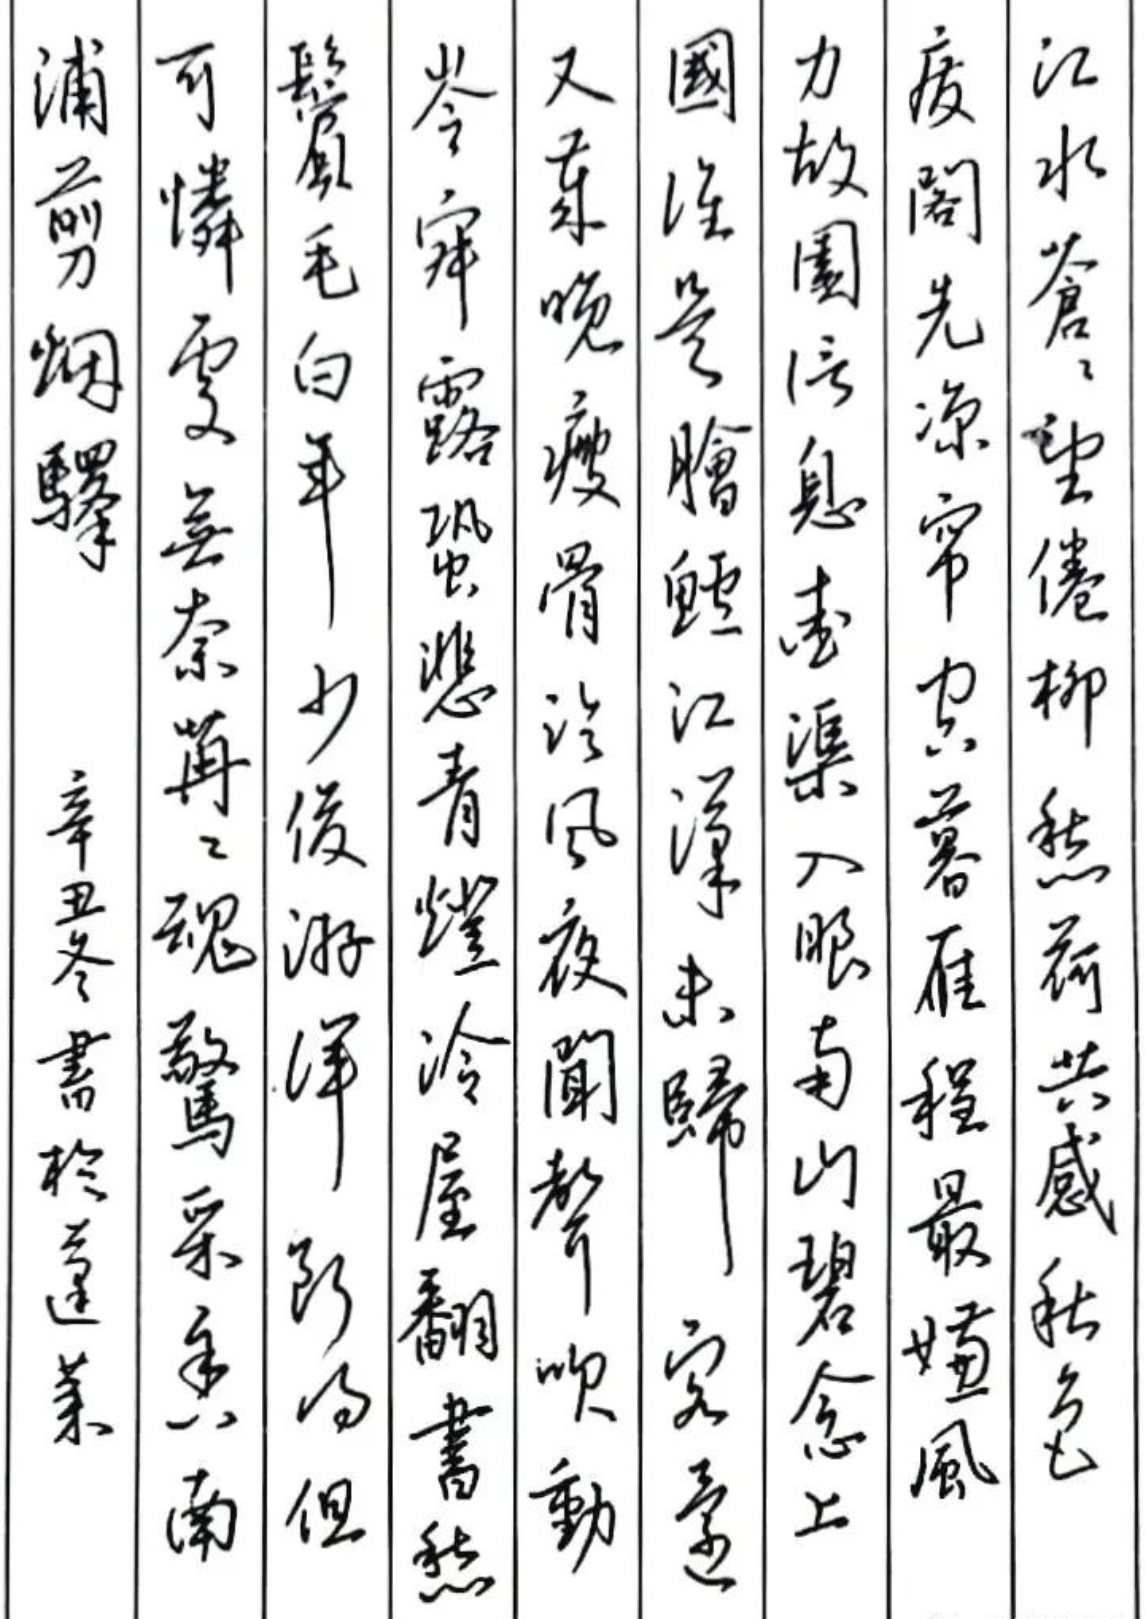 江水蒼〻望倦柳愁荷共感秋色
廢閣先凉帘空暮雁程最嫌風
力故園信息愛渠入眼南山碧念上
國誰是膾鱸江漢未歸客還
又歲晚瘦骨臨風夜聞聲吹動
岑寂露蛩悲青燈冷屋翻書愁
鬢毛白年少俊游渾斷得但
可憐處無奈苒〻魂驚采香南
浦剪烟驛 辛丑冬書於蓬萊